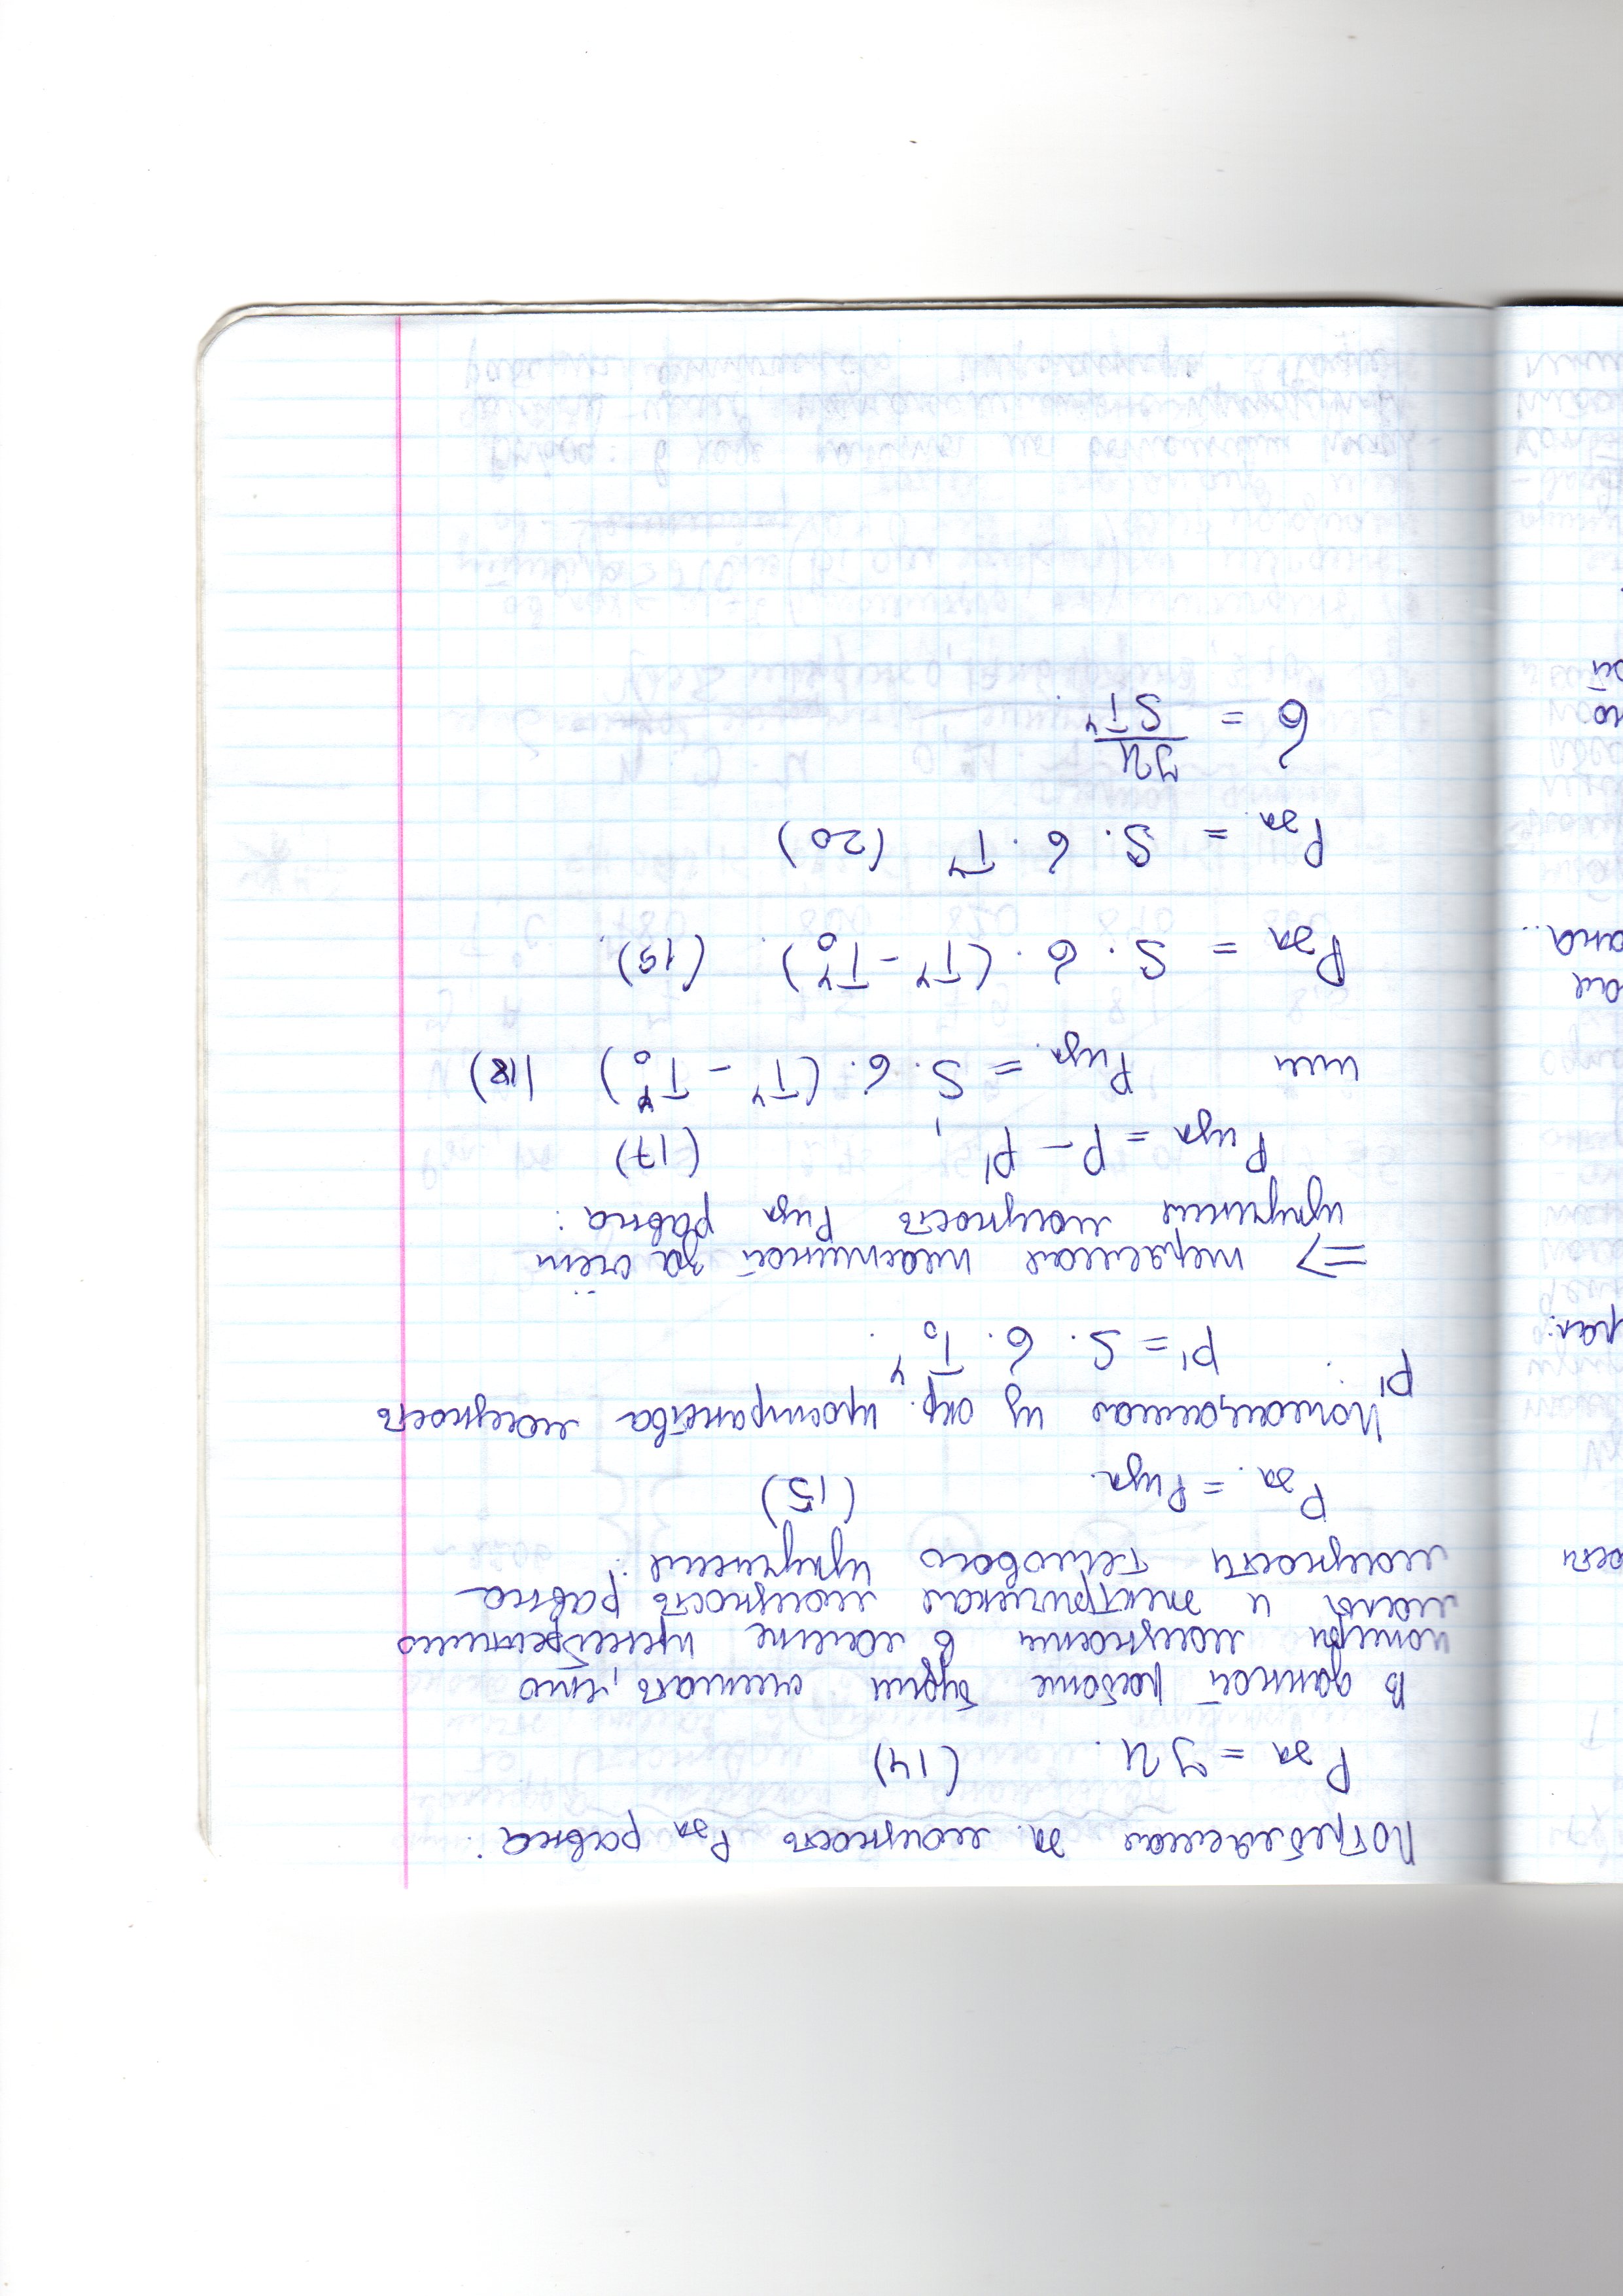 Потребляемая эл. мощность Pэл равна:
Pэл = IU. (14)
В данной работе будем считать, что
потери мощности в лампе пренебрежимо
малы и электрическая мощность равна
мощности теплового излучения:
Pэл. = Pизл. (15)
Поглощаемая из окр. пространства мощность
P' :
P' = S · σ · T₀⁴.
=> теряемая пластиной за счёт
излучения мощность Pизл равна:
Pизл = P – P', (17)
или Pизл. = S · σ · (T⁴ – T₀⁴) (18)
Pэл = S · σ · (T⁴ – T₀⁴). (19).
Pэл. = S · σ · T⁴ (20)
σ = IU / ST⁴.
ости
рал:
ая
ана..
но
ой